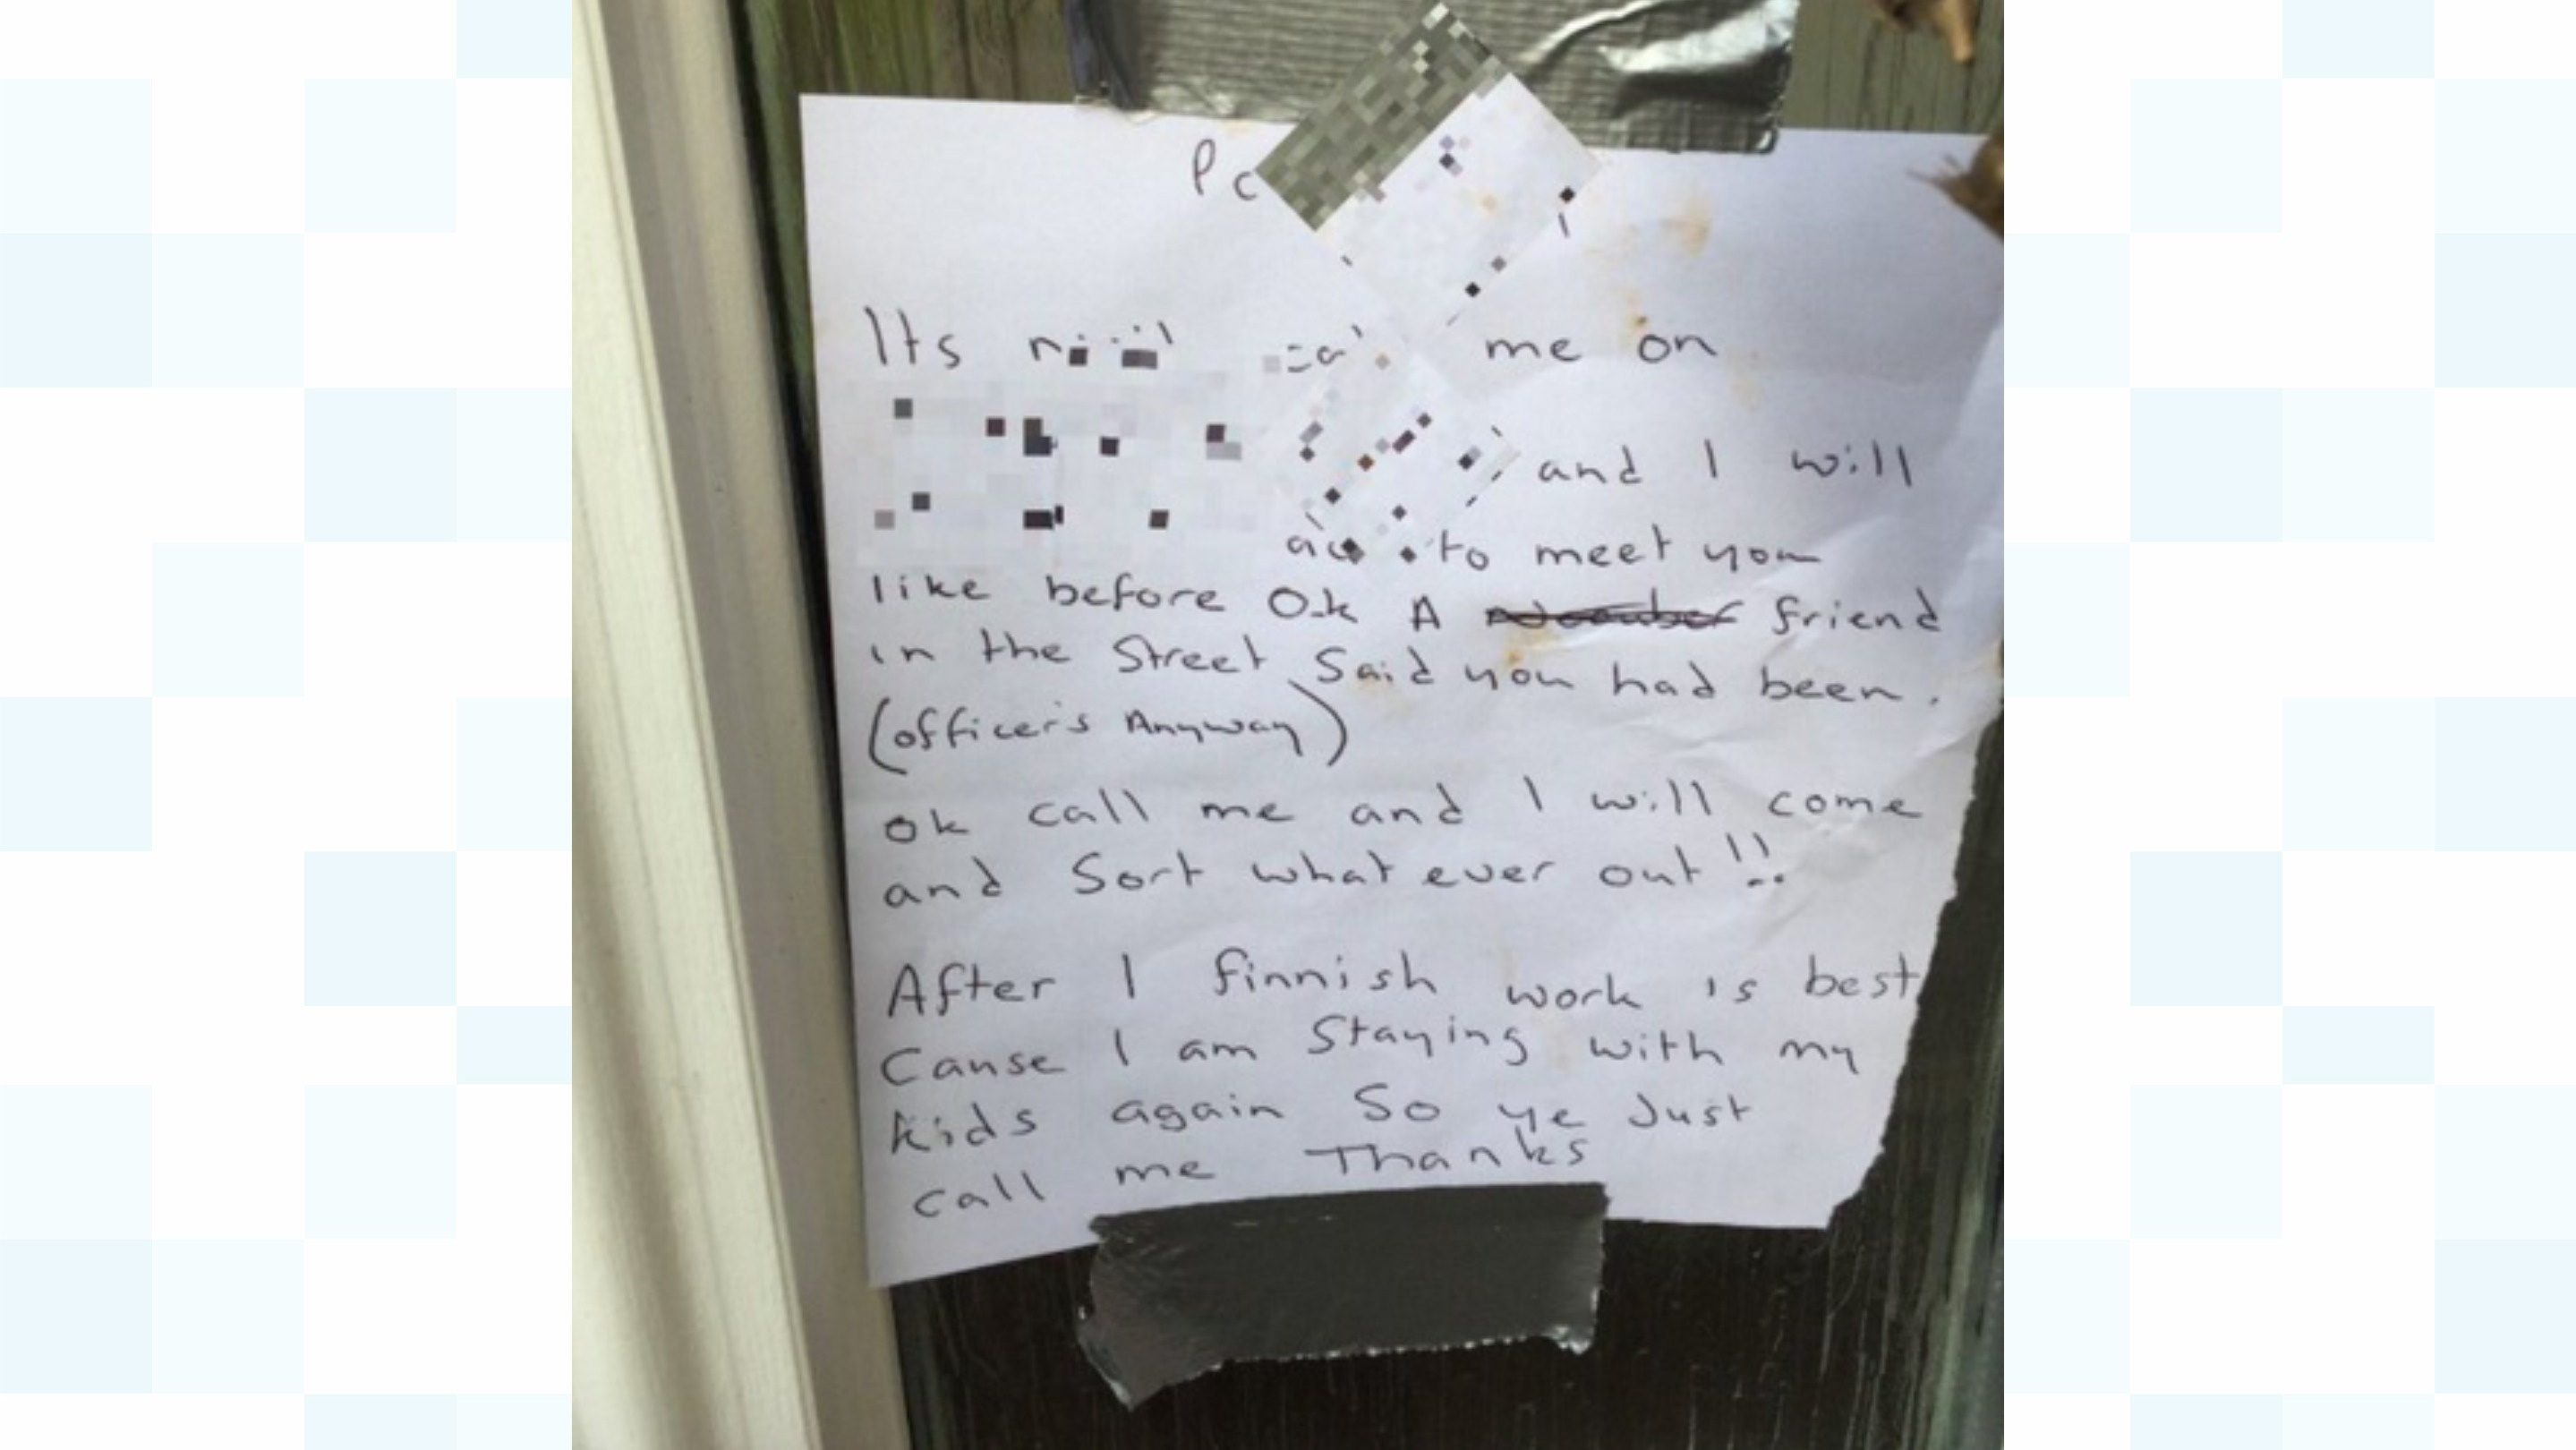 Pc
Its me on
and I will
to meet you
like before Ok A friend
in the Street Said you had been.
(officer's Anyway)
ok call me and I will come
and Sort what ever out!!
After I finnish work is best
Cause I am Staying with my
kids again So ye Just
call me Thanks